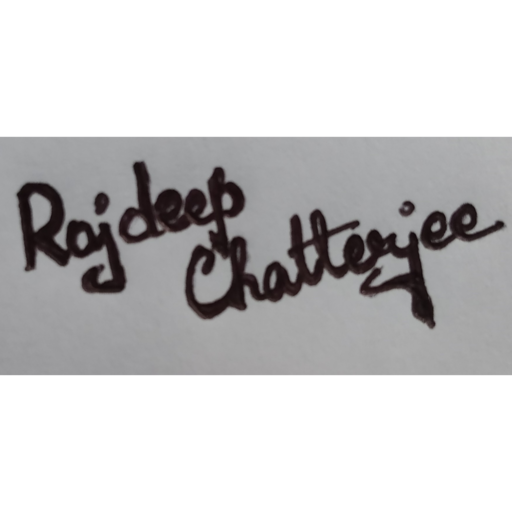 Rajdeep
Chatterjee